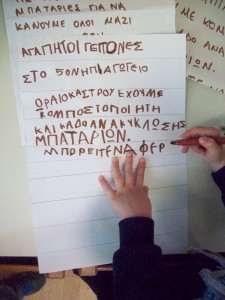 ΜΠΑΤΑΡΙΕΣ ΓΙΑ ΝΑ
ΚΑΝΟΥΜΕ ΟΛΟΙ ΜΑΖΙ
ΑΓΑΠΗΤΟΙ ΓΕΙΤΟΝΕΣ
ΣΤΟ 5ΟΝΗΠΙΑΓΩΓΕΙΟ
ΩΡΑΙΟΚΑΣΤΡΟΥ ΕΧΟΥΜΕ
ΚΟΜΠΟΣΤΟΠΟΙΗΤΗ
ΚΑΙ ΚΑΔΟ ΑΝΑΚΥΚΛΩΣΗΣ
ΜΠΑΤΑΡΙΩΝ.
ΜΠΟΡΕΙΤΕ ΝΑ ΦΕΡ